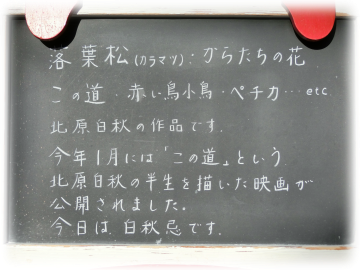 落葉松(カラマツ)・からたちの花
この道・赤い鳥小鳥・ペチカ…etc
北原白秋の作品です.
今年1月には「この道」という
北原白秋の半生を描いた映画が
公開されました。
今日は、白秋忌です.